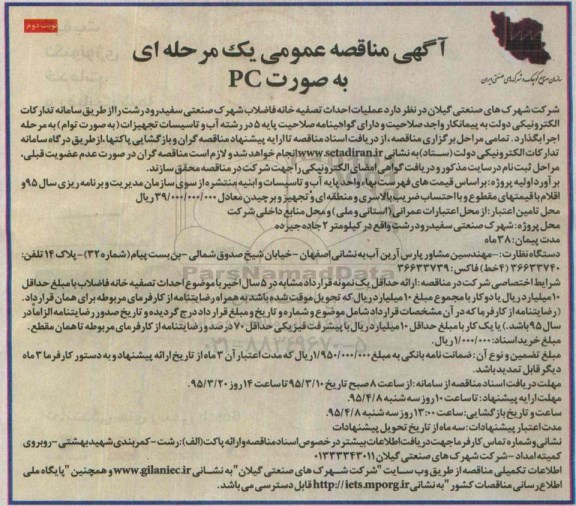 نوبت دوم
سازمان صنایع کوچک و شهرک‌های صنعتی ایران
آگهی مناقصه عمومی یک مرحله ای
به صورت PC
شرکت شهرک های صنعتی گیلان در نظر دارد عملیات احداث تصفیه خانه فاضلاب شهرک صنعتی سفیدرود رشت را از طریق سامانه تدارکات
الکترونیکی دولت به پیمانکار واجد صلاحیت و دارای گواهینامه صلاحیت پایه ۵ در رشته آب و تاسیسات تجهیزات (به صورت توام) به مرحله
اجرا بگذارد. تمامی مراحل برگزاری مناقصه، از دریافت اسناد مناقصه تا ارایه پیشنهاد مناقصه گران و بازگشایی پاکتها، از طریق درگاه سامانه
تدارکات الکترونیکی دولت (ستاد) به نشانی www.setadiran.ir انجام خواهد شد و لازم است مناقصه گران در صورت عدم عضویت قبلی،
مراحل ثبت نام در سایت مذکور و دریافت گواهی امضای الکترونیکی را جهت شرکت در مناقصه محقق سازند.
برآورد اولیه پروژه: براساس قیمت های فهرست بها، واحد پایه آب و تاسیسات و ابنیه منتشره از سوی سازمان مدیریت و برنامه ریزی سال ۹۵ و
اقلام با قیمتهای مقطوع و با احتساب ضریب بالاسری و منطقه ای و تجهیز و برچیدن معادل ۳۹/۰۰۰/۰۰۰/۰۰۰ ریال
محل تامین اعتبار: از محل اعتبارات عمرانی (استانی و ملی) و محل منابع داخلی شرکت
محل پروژه: شهرک صنعتی سفیدرود رشت واقع در کیلومتر ۲ جاده جیرده
مدت پیمان: ۳۸ ماه
دستگاه نظارت: -مهندسین مشاور پارس آرین آب به نشانی اصفهان - خیابان شیخ صدوق شمالی -بن بست پیام (شماره ۳۲) - پلاک ۱۴ تلفن:
۳۶۶۳۳۷۴۰ (۴خط) فاکس: ۳۶۶۳۳۷۳۹
شرایط اختصاصی شرکت در مناقصه: ارائه حداقل یک نمونه قرارداد مشابه در ۵ سال اخیر با موضوع احداث تصفیه خانه فاضلاب با مبلغ حداقل
۱۰میلیارد ریال یا دو کار با مجموع مبلغ ۱۰ میلیارد ریال که تحویل موقت شده باشد به همراه رضایتنامه از کارفرمای مربوطه برای همان قرارداد.
(رضایتنامه از کارفرما که در آن مشخصات قرارداد شامل موضوع و شماره و تاریخ و مبلغ قرارداد درج گردیده و تاریخ صدور رضایتنامه الزاما در
سال ۹۵ باشد.) یا یک کار با مبلغ حداقل ۱۰ میلیارد ریال با پیشرفت فیزیکی حداقل ۷۰ درصد و رضایتنامه از کارفرمای مربوطه تا همان مقطع.
مبلغ خرید اسناد: ۱/۰۰۰/۰۰۰ ریال.
مبلغ تضمین و نوع آن: ضمانت نامه بانکی به مبلغ ۱/۹۵۰/۰۰۰/۰۰۰ ریال که مدت اعتبار آن ۳ ماه از تاریخ ارائه پیشنهاد و به دستور کارفرما ۳ ماه
دیگر قابل تمدید باشد.
مهلت دریافت اسناد مناقصه از سامانه: از ساعت ۸ صبح تاریخ ۹۵/۳/۱۰ تا ساعت ۱۴ روز ۹۵/۳/۲۰.
مهلت ارایه پیشنهاد: تا ساعت ۱۰ روز سه شنبه ۹۵/۴/۸.
ساعت و تاریخ بازگشایی: ساعت ۱۳:۰۰ روز سه شنبه ۹۵/۴/۸.
مدت اعتبار پیشنهادات: سه ماه از تاریخ تحویل پیشنهادات
نشانی و شماره تماس کارفرما جهت دریافت اطلاعات بیشتر در خصوص اسناد مناقصه و ارائه پاکت (الف): رشت - کمربندی شهید بهشتی - روبروی
کمیته امداد - شرکت شهرک های صنعتی گیلان ۰۱۳۳۳۳۴۳۰۱۱
اطلاعات تکمیلی مناقصه از طریق وب سایت "شرکت شهرک های صنعتی گیلان" به نشانی www.gilaniec.ir و همچنین "پایگاه ملی
اطلاع رسانی مناقصات کشور" به نشانی http://iets.mporg.ir قابل دسترسی می باشد.
ParsNamadData
۰۲۱-۸۸۳۴۹۶۷۰-۵